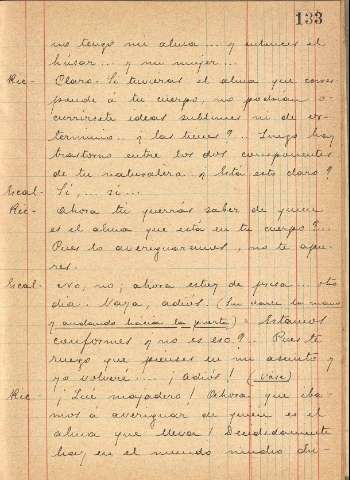 133
no tengo mi alma... y entonces el
húsar... y mi mujer...
Ric- Claro. Si tuvieras el alma que corres
ponde á tu cuerpo, no podrían o-
currírsete ideas sublimes ni de ex-
terminio. Y las tienes?.. Luego hay
trastorno entre los dos componentes
de tu naturaleza. Está esto claro?
Escal- Sí... sí...
Ric- Ahora tú querrás saber de quien
es el alma que está en tu cuerpo?..
Pues lo averiguaremos, no te apu-
res.
Escal- No, no; ahora estoy de prisa... otro
día. Vaya, adiós. (Sin darle la mano
y andando hácia la puerta) Estamos
conformes y no es eso?.. Pues te
ruego que pienses en mi asunto y
yo volveré... ¡adiós! (váse)
Ric- ¡Qué majadero! Ahora que íba-
mos á averiguar de quien es el
alma que lleva! Decididamente
hay en el mundo mucho chi-